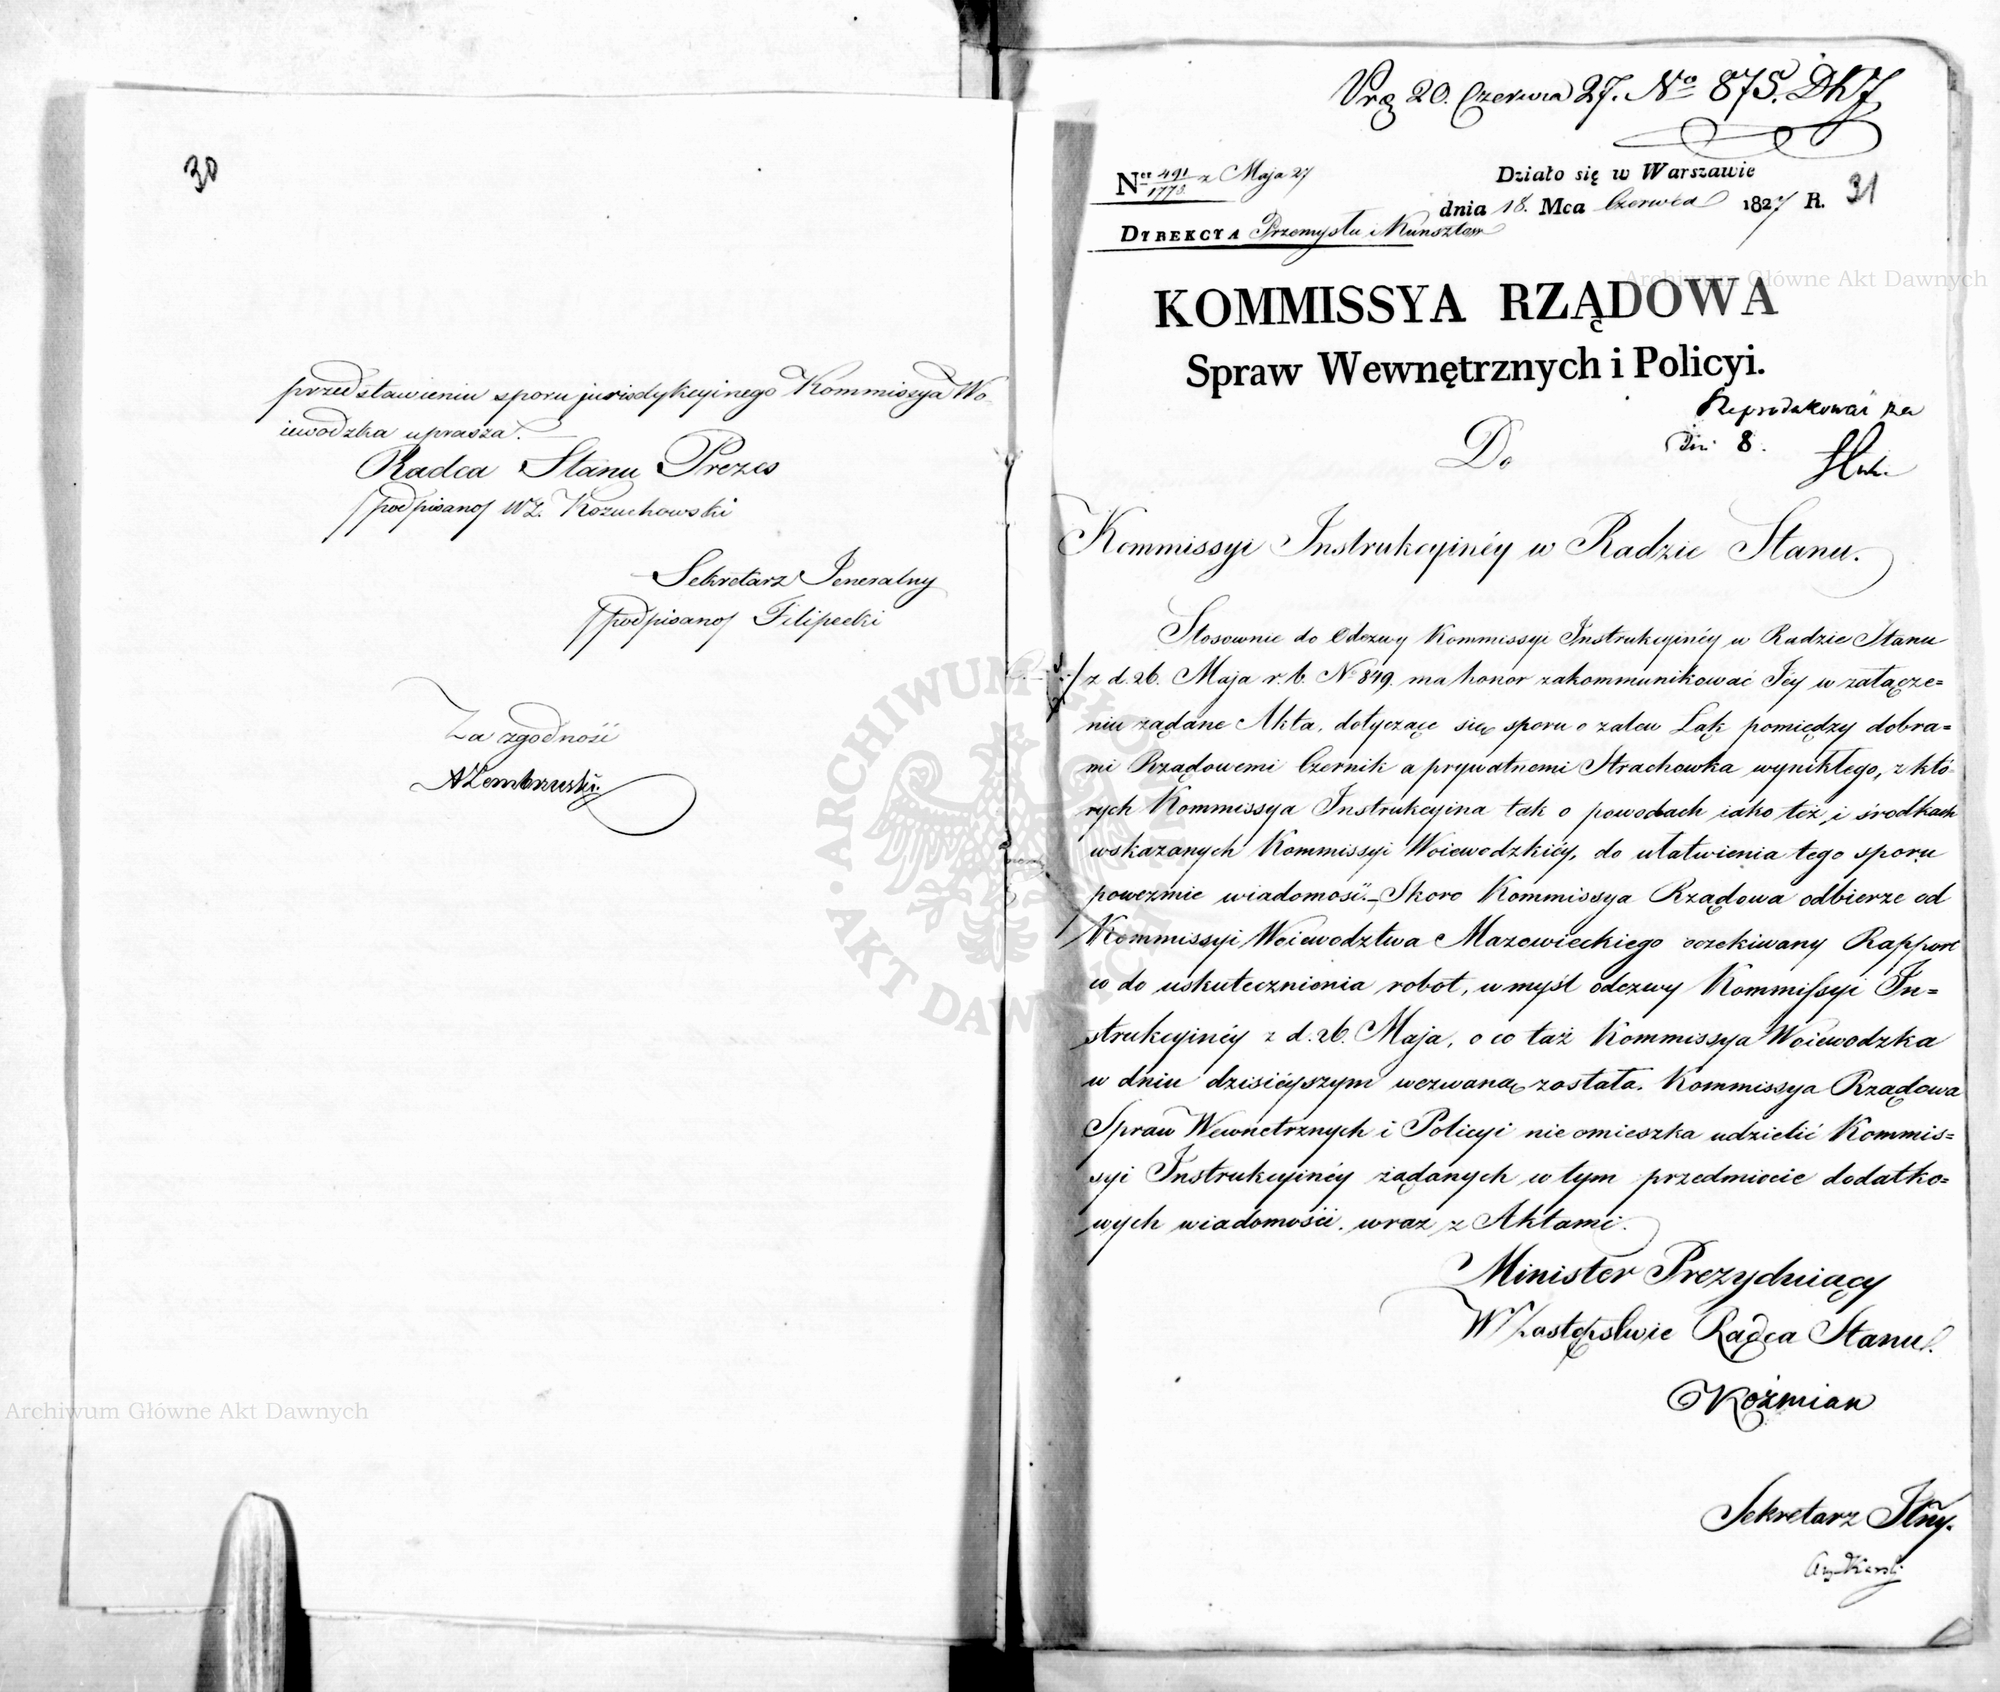 30
przedstawieniu sporu jurisdykcyinego Kommissya Wo-
iewodzka uprasza.
Radca Stanu Prezes
/podpisano/ Kożuchowski
Sekretarz Jeneralny
/podpisano/ Filipecki
Za zgodność
Archiwum Główne Akt Dawnych
20. Czerwca 27. No 875.
Ner 491/1778 z Maja 27
Działo się w Warszawie
dnia 18. Mca Czerwca 1827 R.
31
DYREKCYA Przemysłu i Kunsztow
Archiwum Główne Akt Dawnych
KOMMISSYA RZĄDOWA
Spraw Wewnętrznych i Policyi.
Dni 8.
Do
Kommissyi Instrukcyinéy w Radzie Stanu.
Stosownie do Odezwy Kommissyi Instrukcyinéy w Radzie Stanu
z d. 26. Maja r. b. No 849. ma honor zakommunikować Jey w załącze=
niu żądane Akta, dotyczące się sporu o zalew Łąk pomiędzy dobra=
mi Rządowemi Czernik a prywatnemi Strachowka wynikłego, z któ-
rych Kommissya Instrukcyina tak o powodach iako też i środkach
wskazanych Kommissyi Woiewodzkiéy, do ułatwienia tego sporu
poweźmie wiadomość. Skoro Kommissya Rządowa odbierze od
Kommissyi Woiewodztwa Mazowieckiego oczekiwany Rapport
co do uskutecznienia robot, w myśl odezwy Kommissyi In=
strukcyinéy z d. 26. Maja, o co taż Kommissya Woiewodzka
w dniu dzisiéyszym wezwaną została. Kommissya Rządowa
Spraw Wewnetrznych i Policyi nie omieszka udzielić Kommis=
syi Instrukcyinéy żądanych w tym przedmiocie dodatko=
wych wiadomości, wraz z Aktami.
Minister Prezyduiący
W Zastępstwie Radca Stanu
Koźmian
Sekretarz
ARCHIWUM GŁÓWNE AKT DAWNYCH